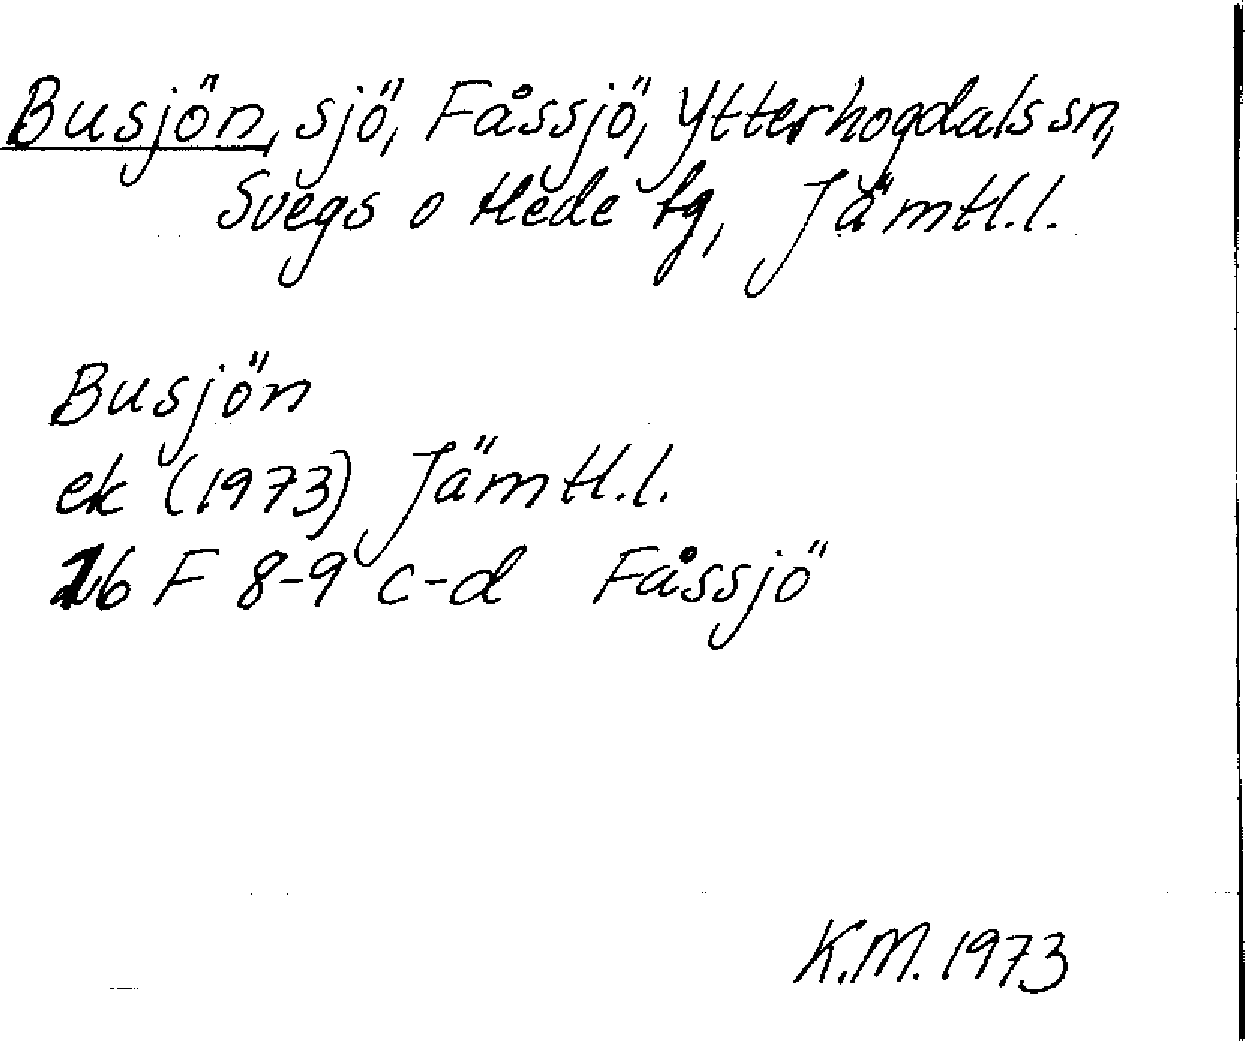 Busjön, sjö, Fåssjö, Ytterhogdals sn,
Svegs o Hede tg, Jämtl.l.
Busjön
ek (1973) Jämtl.l.
16 F 8-9 c-d Fåssjö
K.M. 1973